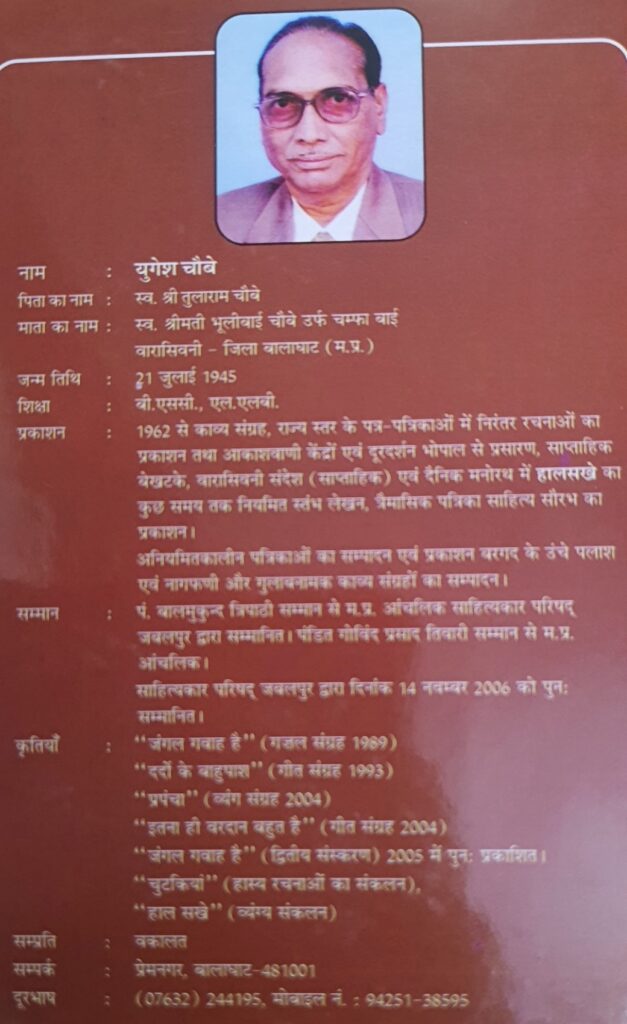 नाम : युगेश चौबे
पिता का नाम : स्व. श्री तुलाराम चौबे
माता का नाम : स्व. श्रीमती भूलीबाई चौबे उर्फ चम्फा बाई
वारासिवनी - जिला बालाघाट (म.प्र.)
जन्म तिथि : 21 जुलाई 1945
शिक्षा : बी.एससी., एल.एलबी.
प्रकाशन : 1962 से काव्य संग्रह, राज्य स्तर के पत्र-पत्रिकाओं में निरंतर रचनाओं का
प्रकाशन तथा आकाशवाणी केंद्रों एवं दूरदर्शन भोपाल से प्रसारण, साप्ताहिक
बेखटके, वारासिवनी संदेश (साप्ताहिक) एवं दैनिक मनोरथ में हालसखे का
कुछ समय तक नियमित स्तंभ लेखन, त्रैमासिक पत्रिका साहित्य सौरभ का
प्रकाशन।
अनियमितकालीन पत्रिकाओं का सम्पादन एवं प्रकाशन बरगद के उंचे पलाश
एवं नागफणी और गुलाबनामक काव्य संग्रहों का सम्पादन।
सम्मान : पं. बालमुकुन्द त्रिपाठी सम्मान से म.प्र. आंचलिक साहित्यकार परिषद्
जबलपुर द्वारा सम्मानित। पंडित गोविंद प्रसाद तिवारी सम्मान से म.प्र.
आंचलिक।
साहित्यकार परिषद् जबलपुर द्वारा दिनांक 14 नवम्बर 2006 को पुन:
सम्मानित।
कृतियाँ : "जंगल गवाह है" (गजल संग्रह 1989)
"दर्दो के बाहुपाश" (गीत संग्रह 1993)
"प्रपंचा" (व्यंग संग्रह 2004)
"इतना ही वरदान बहुत है" (गीत संग्रह 2004)
"जंगल गवाह है" (द्वितीय संस्करण) 2005 में पुन: प्रकाशित।
"चुटकियां" (हास्य रचनाओं का संकलन),
"हाल सखे" (व्यंग्य संकलन)
सम्प्रति : वकालत
सम्पर्क : प्रेमनगर, बालाघाट-481001
दूरभाष : (07632) 244195, मोबाइल नं. : 94251-38595